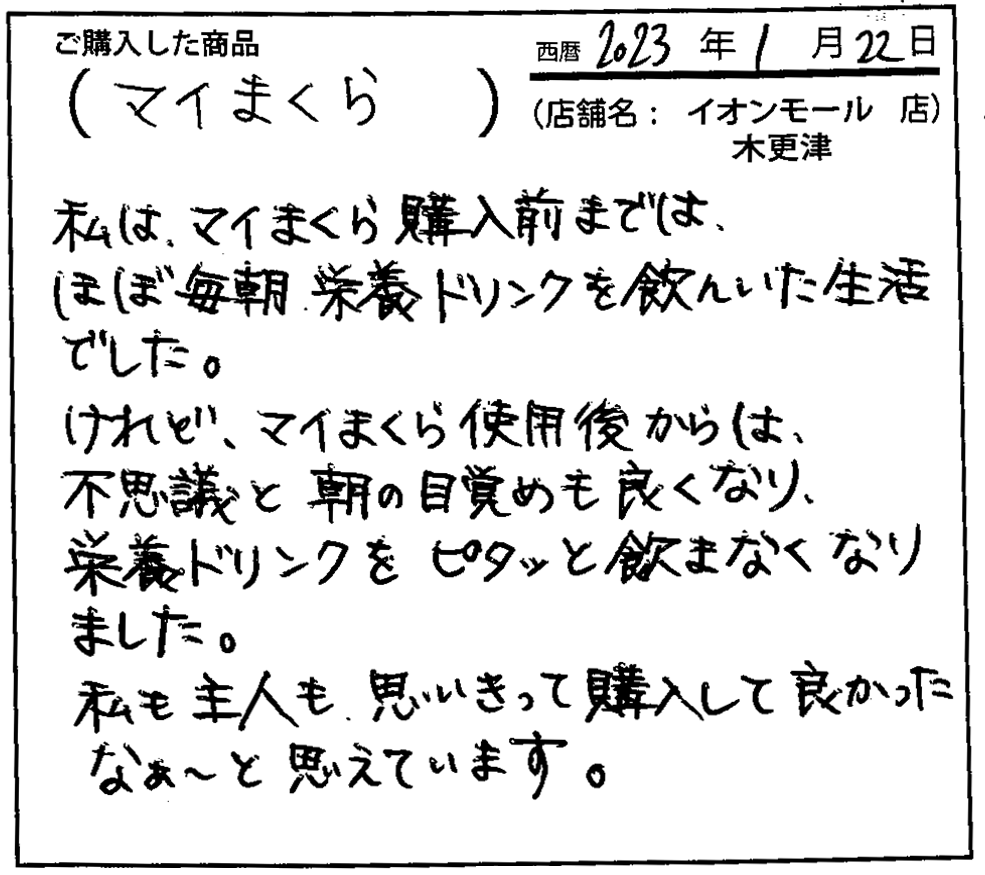 ご購入した商品
(マイまくら)
西暦 2023 年 1 月 22 日
(店舗名: イオンモール 店)
木更津
私は、マイまくら購入前までは、
ほぼ毎朝、栄養ドリンクを飲んいた生活
でした。
けれど、マイまくら使用後からは、
不思議と朝の目覚めも良くなり、
栄養ドリンクをピタッと飲まなくなり
ました。
私も主人も、思いきって購入して良かった
なぁ〜と思えています。